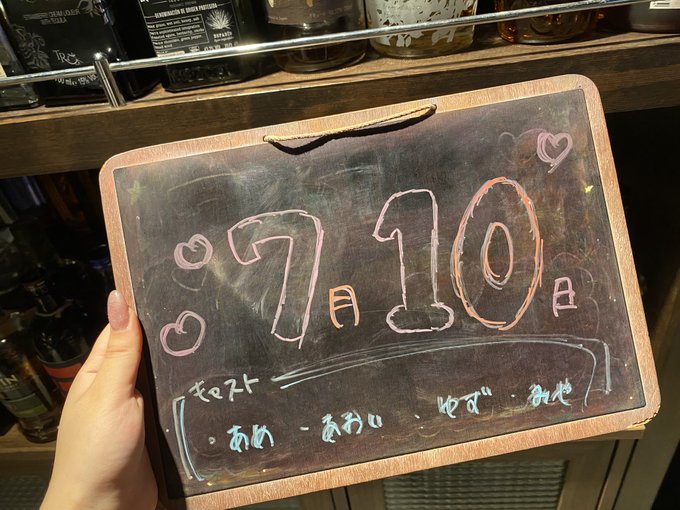 DENOMINACIÓN DE ORIGEN PROTEGIDA
7月10日
キャスト
・あめ ・あおい ・ゆず ・みや